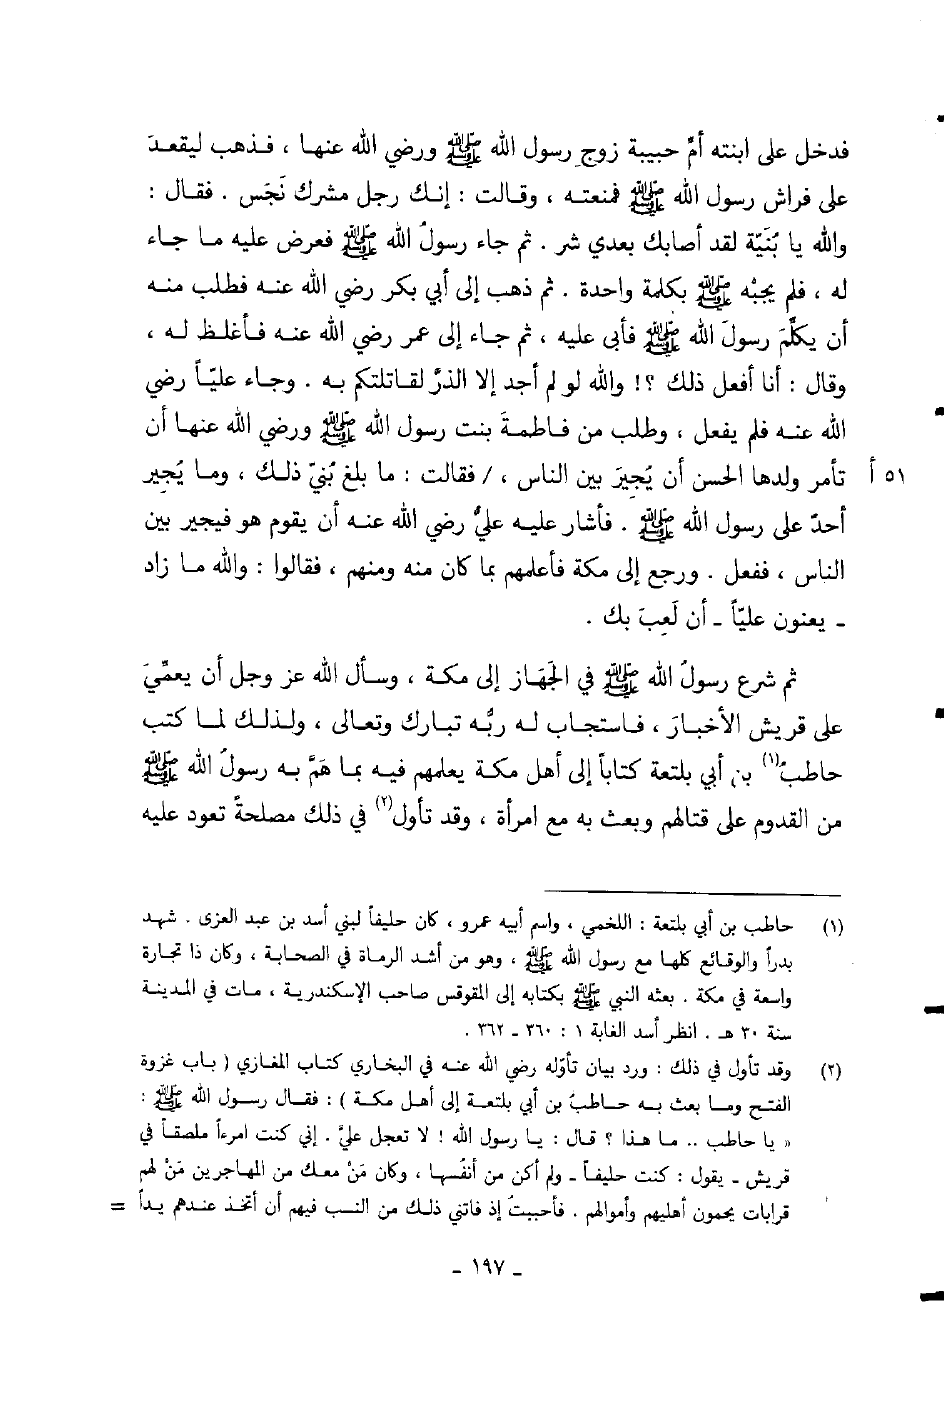 فدخل على ابنته أمِّ حبيبة زوجِ رسول الله ﷺ ورضي الله عنها ، فذهب ليقعدَ
على فراش رسول الله ﷺ فمنعته ، وقالت : إنك رجل مشرك نَجَس . فقال :
والله يا بُنَيَّة لقد أصابك بعدي شر . ثم جاء رسولَ الله ﷺ فعرض عليه ما جاء
له ، فلم يجبْه ﷺ بكلمة واحدة . ثم ذهب إلى أبي بكر رضي الله عنه فطلب منه
أن يكلِّمَ رسولَ الله ﷺ فأبى عليه ، ثم جاء إلى عمر رضي الله عنه فأغلظ له ،
وقال : أنا أفعل ذلك ؟! والله لو لم أجد إلا الذرَّ لقاتلتكم به . وجاء عليّاً رضي
الله عنه فلم يفعل ، وطلب من فاطمةَ بنت رسول الله ﷺ ورضي الله عنها أن
٥١ أ تأمر ولدها الحسن أن يُجيرَ بين الناس ، / فقالت : ما بلغ بُنيّ ذلك ، وما يُجير
أحدٌ على رسول الله ﷺ . فأشار عليه عليٌّ رضي الله عنه أن يقوم هو فيجير بين
الناس ، ففعل . ورجع إلى مكة فأعلمهم بما كان منه ومنهم ، فقالوا : والله ما زاد
ـ يعنون عليّاً ـ أن لَعِبَ بك .
ثم شرع رسولُ الله ﷺ في الجَهَاز إلى مكة ، وسأل الله عز وجل أن يعمِّيَ
على قريش الأخبارَ ، فاستجاب له ربُّه تبارك وتعالى ، ولذلك لما كتب
حاطبُ(١) بن أبي بلتعة كتاباً إلى أهل مكة يعلمهم فيه بما هَمَّ به رسولُ الله ﷺ
من القدوم على قتالهم وبعث به مع امرأة ، وقد تأول(٢) في ذلك مصلحةً تعود عليه
(١) حاطب بن أبي بلتعة : اللخمي ، واسم أبيه عمرو ، كان حليفاً لبني أسد بن عبد العزى . شهد
بدراً والوقائع كلها مع رسول الله ﷺ ، وهو من أشد الرماة في الصحابة ، وكان ذا تجارة
واسعة في مكة . بعثه النبي ﷺ بكتابه إلى المقوقس صاحب الإسكندرية ، مات في المدينة
سنة ٣٠ هـ . انظر أسد الغابة ١ : ٣٦٠ ـ ٣٦٢ .
(٢) وقد تأول في ذلك : ورد بيان تأوّله رضي الله عنه في البخاري كتاب المغازي ( باب غزوة
الفتح وما بعث به حاطبُ بن أبي بلتعة إلى أهل مكة ) : فقال رسول الله ﷺ :
« يا حاطب .. ما هذا ؟ قال : يا رسول الله ! لا تعجل عليَّ . إني كنت امرءاً ملصقاً في
قريش ـ يقول : كنت حليفاً ـ ولم أكن من أنفُسها ، وكان مَنْ معك من المهاجرين مَنْ لهم
قرابات يحمون أهليهم وأموالهم . فأحببتُ إذ فاتني ذلك من النسب فيهم أن أتخذ عندهم يداً =
ـ ١٩٧ ـ